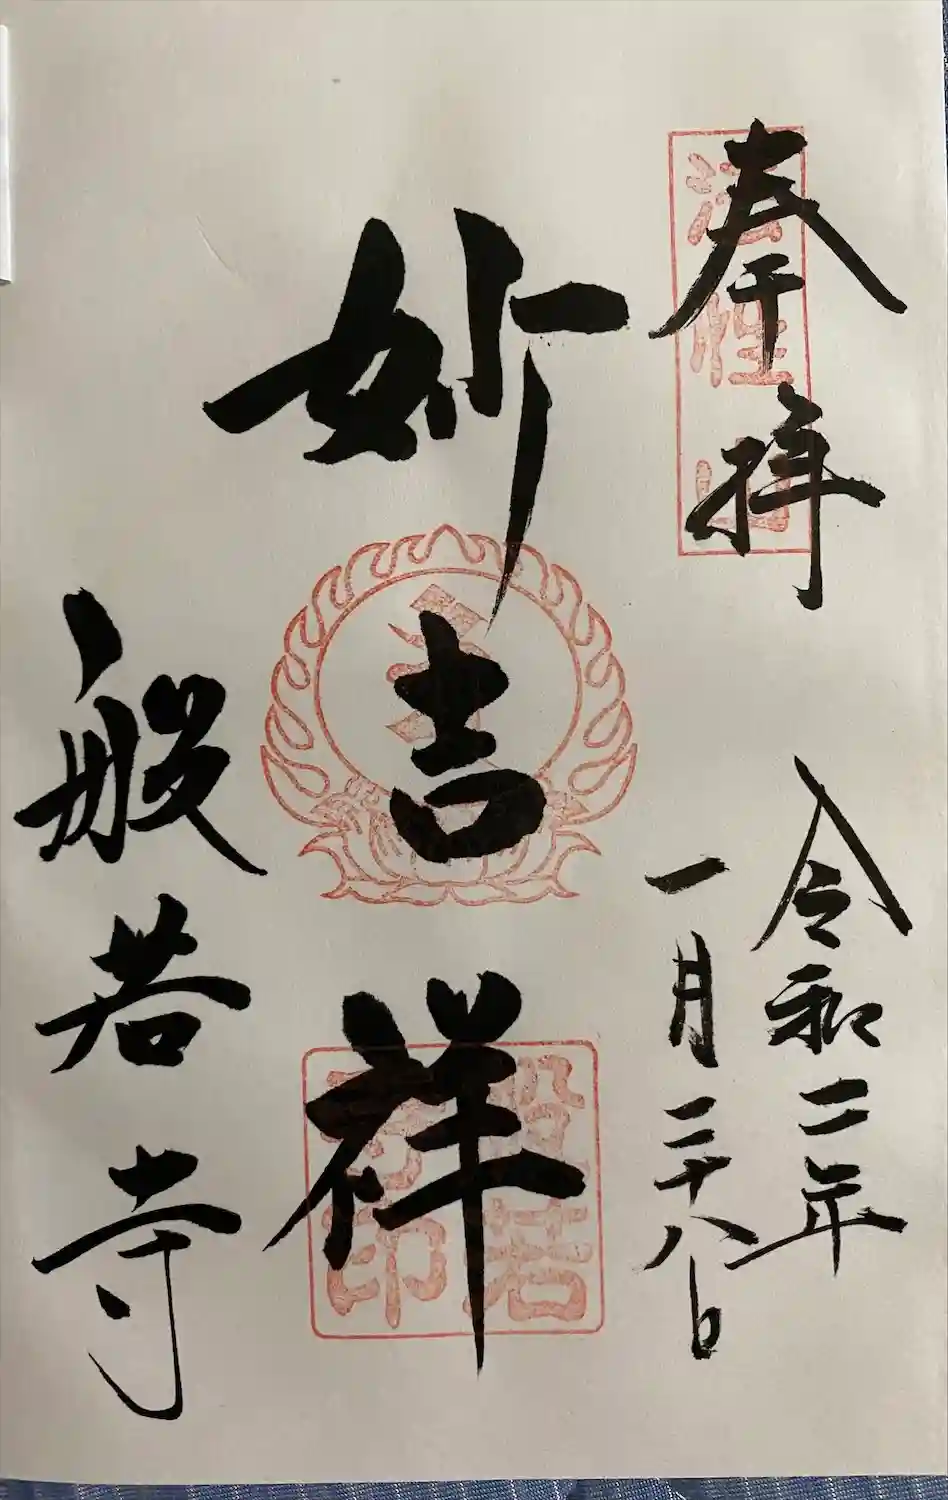 奉拝
法性山
令和二年
一月二十八日
妙吉祥
般若寺印
般若寺